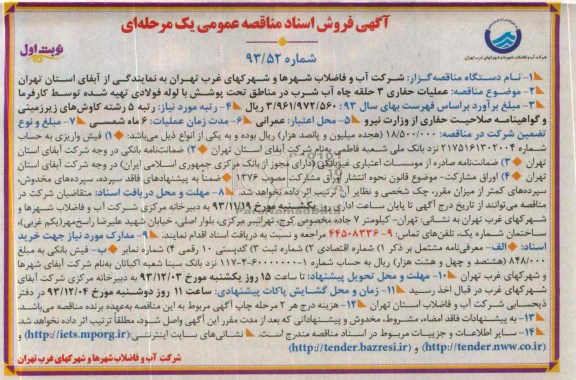 آگهی فروش اسناد مناقصه عمومی یک مرحله‌ای
شماره ۹۳/۵۲
نوبت اول
شرکت آب و فاضلاب شهرها و شهرکهای غرب تهران
۱- نام دستگاه مناقصه‌گزار: شرکت آب و فاضلاب شهرها و شهرکهای غرب تهران به نمایندگی از آبفای استان تهران
۲- موضوع مناقصه: عملیات حفاری ۳ حلقه چاه آب شرب در مناطق تحت پوشش با لوله فولادی تهیه شده توسط کارفرما
۳- مبلغ برآورد براساس فهرست بهای سال ۹۳: ۳/۹۶۱/۹۷۲/۵۶۰ ریال ۴- رتبه مورد نیاز: رتبه ۵ رشته کاوش‌های زیرزمینی
و گواهینامه صلاحیت حفاری از وزارت نیرو ۵- محل اعتبار: عمرانی ۶- مدت زمان عملیات: ۶ ماه شمسی ۷- مبلغ و نوع
تضمین شرکت در مناقصه: ۱۸/۵۰۰/۰۰۰ (هجده میلیون و پانصد هزار) ریال بوده و به یکی از انواع ذیل می‌باشد: ۱) فیش واریزی به حساب
شماره ۲۱۷۵۱۶۱۳۰۲۰۰۴ نزد بانک ملی شعبه فاطمی به‌نام شرکت آبفای استان تهران ۲) ضمانت‌نامه بانکی در وجه شرکت آبفای استان
تهران ۳) ضمانت‌نامه صادره از موسسات اعتباری غیربانکی (دارای مجوز از بانک مرکزی جمهوری اسلامی ایران) در وجه شرکت آبفای استان
تهران ۴) اوراق مشارکت- موضوع قانون نحوه انتشار اوراق مشارکت مصوب ۱۳۷۶ ضمناً به پیشنهادهای فاقد سپرده، سپرده‌های مخدوش،
سپرده‌های کمتر از میزان مقرر، چک شخصی و نظایر آن ترتیب اثر داده نخواهد شد. ۸- مهلت و محل دریافت اسناد: متقاضیان شرکت در
مناقصه می‌توانند از تاریخ درج آگهی تا پایان ساعت اداری روز یکشنبه مورخ ۹۳/۱۱/۱۹ به دبیرخانه مرکزی شرکت آب و فاضلاب شهرها و
شهرکهای غرب تهران به نشانی: تهران- کیلومتر ۷ جاده مخصوص کرج، تهرانسر مرکزی، بلوار اصلی، خیابان شهید علیرضا راسخ‌مهر (یکم غربی)،
ساختمان شماره یک، تلفن‌های تماس: ۹-۴۴۵۰۸۳۳۶ مراجعه و نسبت به دریافت اسناد اقدام نمایند. ۹- مدارک مورد نیاز جهت خرید
اسناد: الف- معرفی‌نامه مشتمل بر ذکر ۱) شماره اقتصادی ۲) شماره ثبت ۳) کدپستی ۱۰ رقمی ۴) شماره نمابر ب- فیش بانکی به مبلغ
۸۴۸/۰۰۰ (هشتصد و چهل و هشت هزار) ریال به حساب شماره نزد بانک سینا شعبه اکباتان به‌نام شرکت آبفای شهرها
و شهرکهای غرب تهران ۱۰- مهلت و محل تحویل پیشنهاد: تا ساعت ۱۵ روز یکشنبه مورخ ۹۳/۱۲/۰۳ به دبیرخانه مرکزی شرکت آبفای
شهرکهای غرب در قبال اخذ رسید ۱۱- زمان و محل گشایش پاکات پیشنهادی: ساعت ۱۱ روز دوشنبه مورخ ۹۳/۱۲/۰۴ در دفتر
ذیحسابی شرکت آب و فاضلاب استان تهران ۱۲- هزینه درج هر ۲ مرحله چاپ آگهی مربوط به این مناقصه به‌عهده برنده مناقصه می‌باشد.
۱۳- به پیشنهادات فاقد امضاء، مشروط، مخدوش و پیشنهاداتی که بعد از مدت مقرر این آگهی واصل شود، مطلقاً ترتیب اثر داده نخواهد شد.
۱۴- سایر اطلاعات و جزییات مربوط در اسناد مناقصه مندرج است. نشانی‌های سایت اینترنتی: (http://iets.mporg.ir) و
(http://tender.bazresi.ir) و (http://tender.nww.co.ir)
شرکت آب و فاضلاب شهرها و شهرکهای غرب تهران